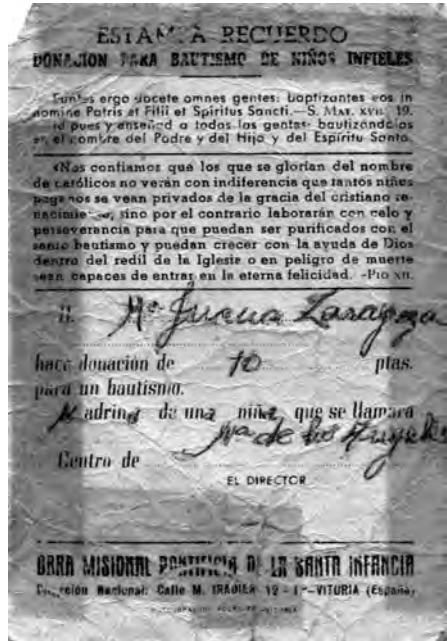 ESTAMPA RECUERDO
DONACION PARA BAUTISMO DE NIÑOS INFIELES
Euntes ergo docete omnes gentes: baptizantes eos in
nomine Patris et Filii et Spiritus Sancti.—S. MAT. XVII. 19.
Id pues y enseñad a todas las gentes bautizándolas
en el nombre del Padre y del Hijo y del Espíritu Santo.
«Nos confiamos que los que se glorían del nombre
de católicos no verán con indiferencia que tantos niños
paganos se vean privados de la gracia del cristiano re-
nacimiento, sino por el contrario laborarán con celo y
perseverancia para que puedan ser purificados con el
santo bautismo y puedan crecer con la ayuda de Dios
dentro del redil de la Iglesia o en peligro de muerte
sean capaces de entrar en la eterna felicidad. -PIO XII.
D. Mª Juana Zaragoza
hace donación de 10 ptas.
para un bautismo.
Madrina de una niña que se llamará
Mª de los Angeles
Centro de
EL DIRECTOR
OBRA MISIONAL PONTIFICIA DE LA SANTA INFANCIA
Dirección Nacional: Calle M. IRADIER 12 - 1º-VITORIA (España)